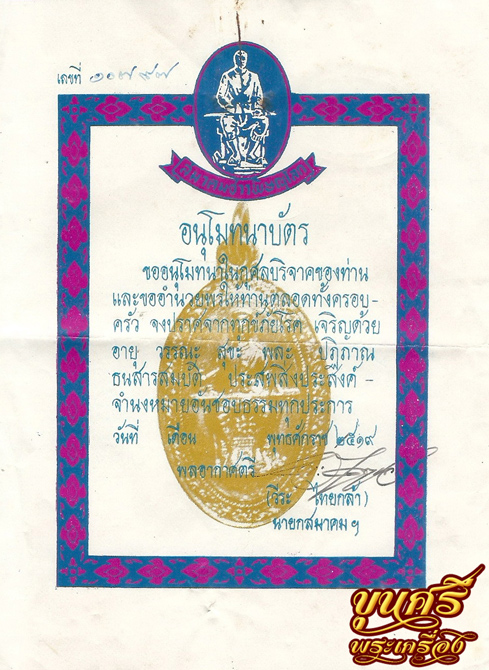 เลขที่ ๑๐๗๙๗
อนุโมทนาบัตร
ขออนุโมทนาในกุศลบริจาคของท่าน
และขออำนวยพรให้ท่านตลอดทั้งครอบ-
ครัว จงปราศจากทุกข์ภัยโรค เจริญด้วย
อายุ วรรณะ สุขะ พละ ปฏิภาณ
ธนสารสมบัติ ประสพสิ่งประสงค์ -
จำนงหมายอันชอบธรรมทุกประการ
วันที่ เดือน พุทธศักราช ๒๕๑๙
พลอากาศตรี
(วีระ ไทยกล้า)
นายกสมาคมฯ
บุญศรี
พระเครื่อง